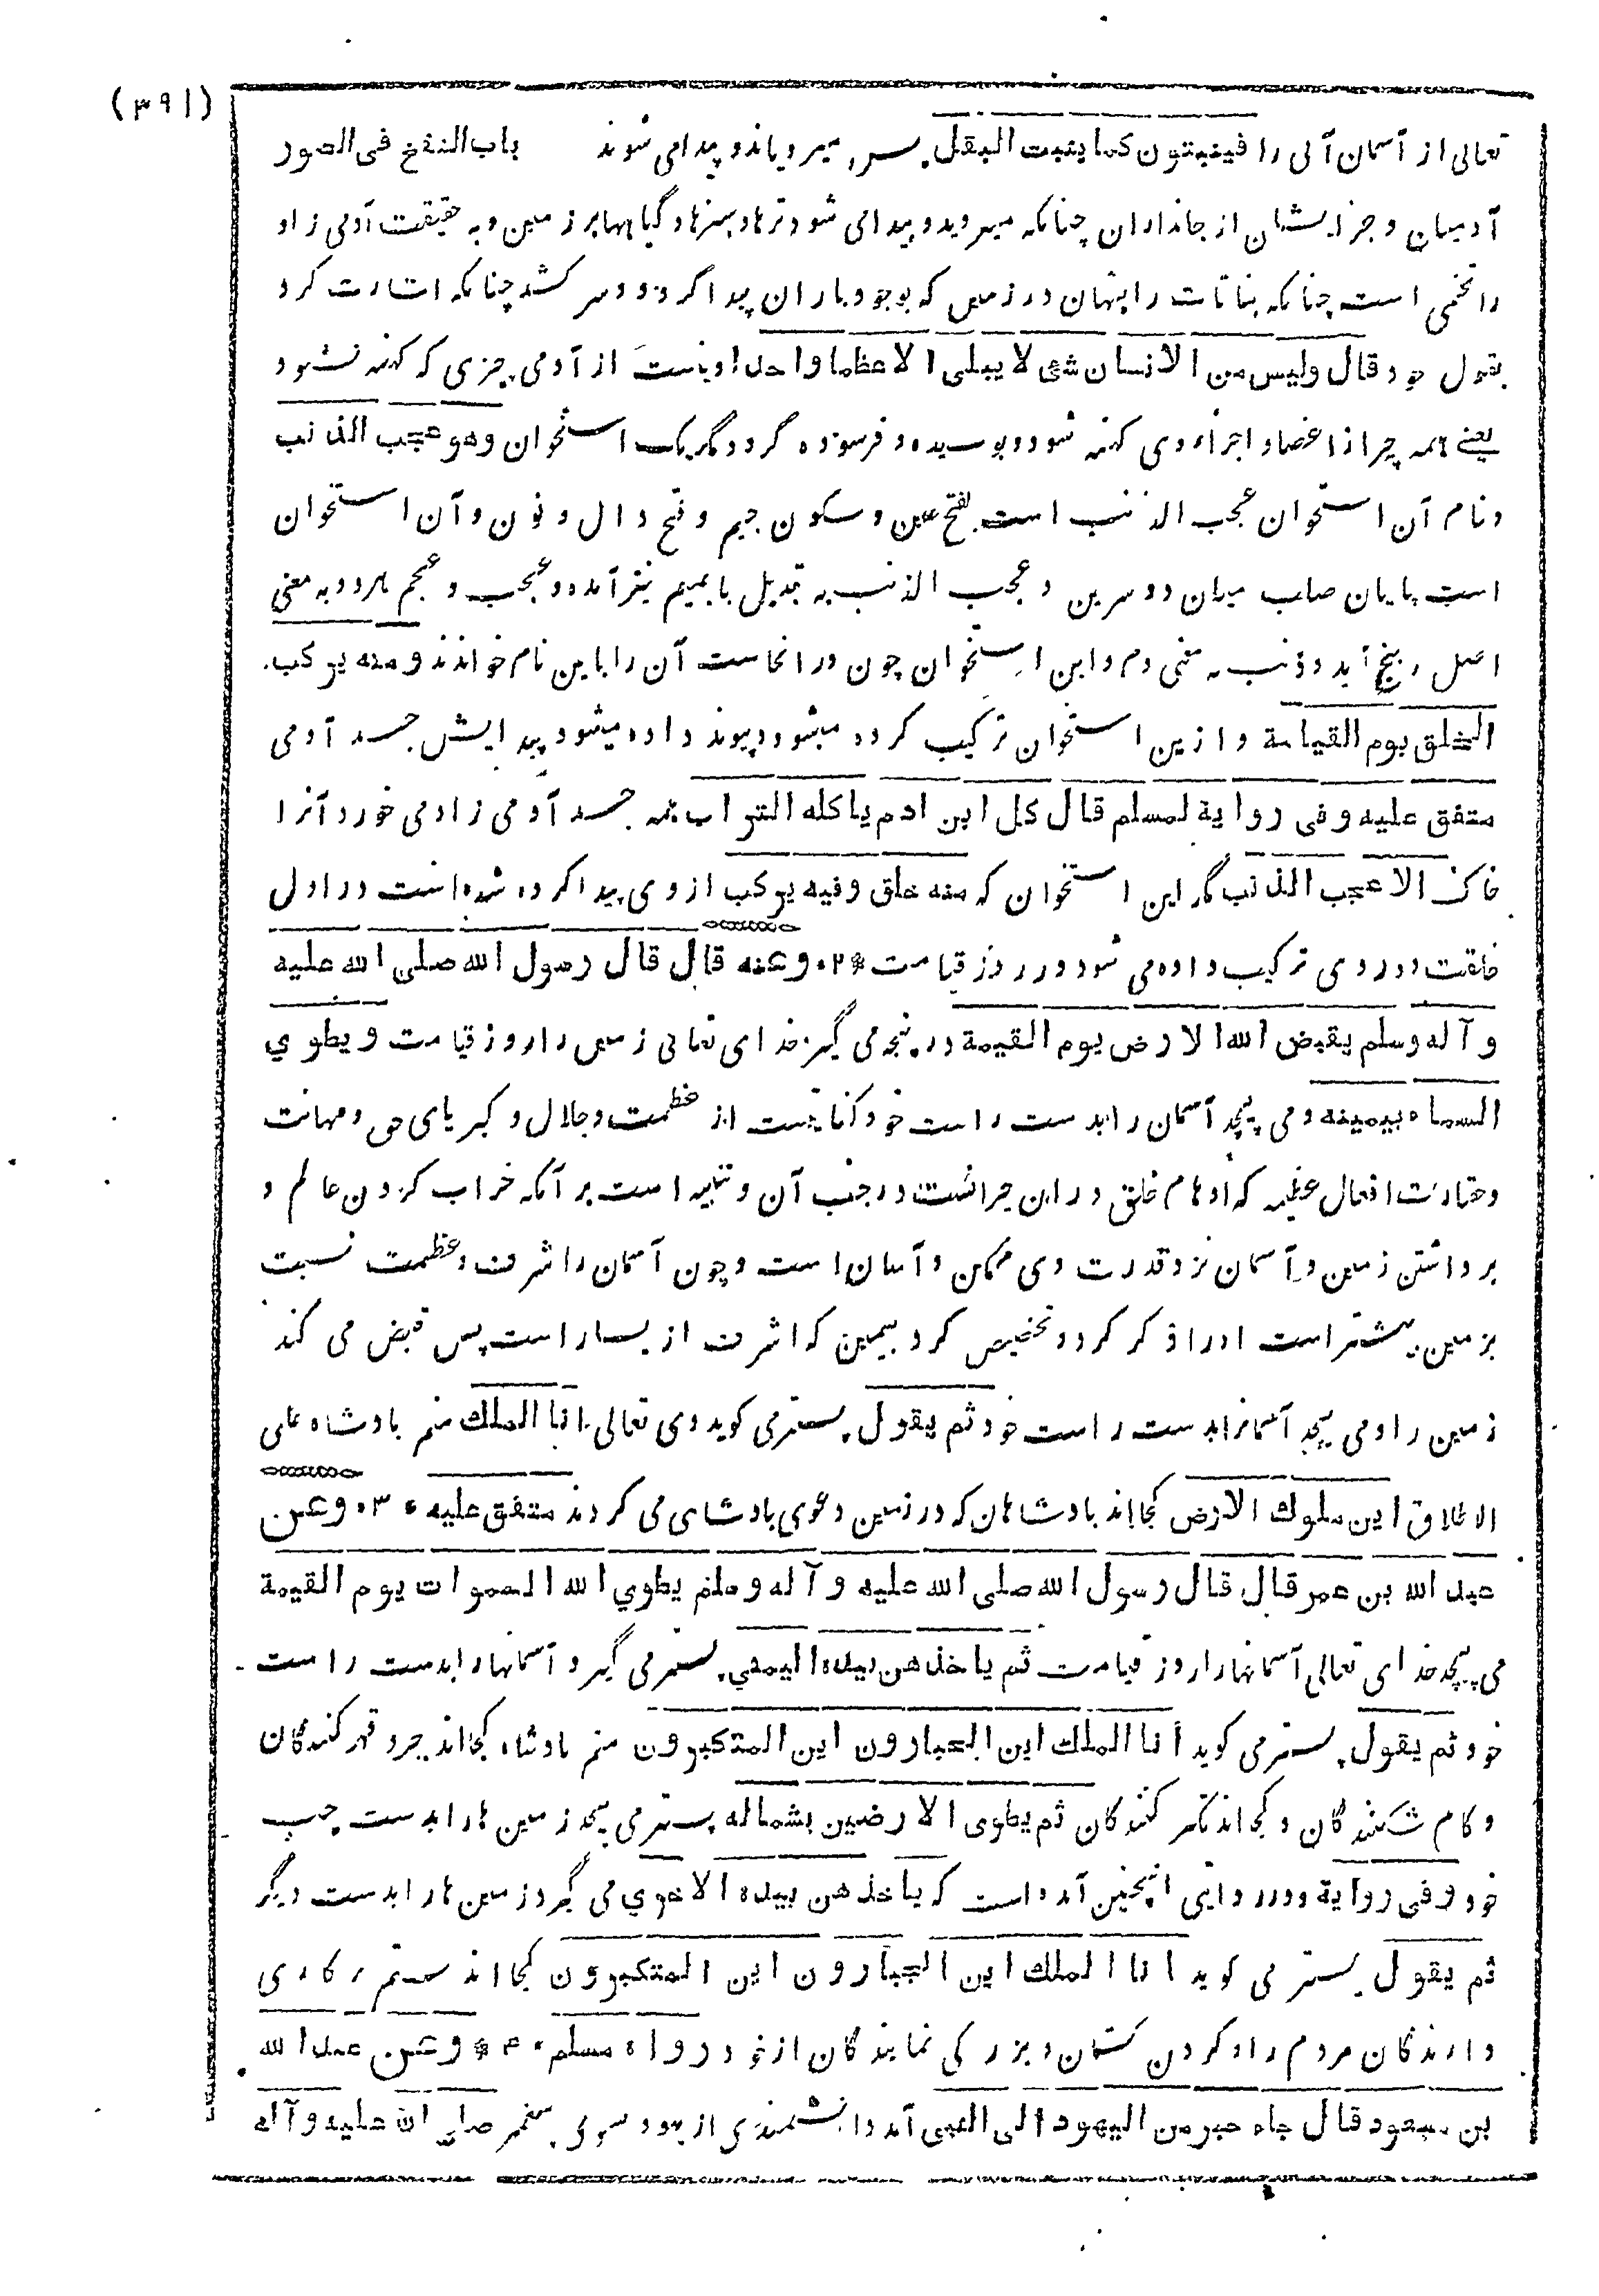 (۳۹۱)
تعالی از آسمان آبی را فینبتون کما ینبت البقل پس میرویاند و پیدا می شوند باب النفخ فی الصور
آدمیان و جز ایشان از جانداران چنانکه میروید و پیدا می شود ترها و سبزها و گیاهها بر زمین و به حقیقت آدمی زاد
را تخمی است چنانکه بناتات را پنهان در زمین که بوجود باران پیدا گردد و سر کشد چنانکه اشارت کرد
بقول خود قال ولیس من الانسان شئ لا یبلی الا عظما واحدا و نیست از آدمی چیزی که کهنه نشود
یعنے همه چیز از اعضا و اجزاء وی کهنه شود و بوسیده و فرسوده گردد مگر یک استخوان وهو عجب الذنب
و نام آن استخوان عجب الذنب است بفتح عین و سکون جیم و فتح ذال و نون و آن استخوان
است پایان صلب میان دو سرین و عجب الذنب به تبدیل با بمیم نیز آمده و عجب و عجم هر دو به معنی
اصل و بیخ آید و ذنب به معنی دم و این استخوان چون در آنجاست آن را باین نام خواندند ومنه یرکب
الخلق یوم القیامة و ازین استخوان ترکیب کرده میشود و پیوند داده میشود پیدایش جسد آدمی
متفق علیه وفی روایة لمسلم قال کل ابن ادم یاکله التراب همه جسد آدمی زاد می خورد آنرا
خاک الا عجب الذنب مگر این استخوان که منه خلق وفیه یرکب از وی پیدا کرده شده است در اول
خلقت و در وی ترکیب داده می شود در روز قیامت * ۲ وعنه قال قال رسول الله صلی الله علیه
وآله وسلم یقبض الله الارض یوم القیمة در پنجه می گیرد خدای تعالی زمین را روز قیامت ویطوي
السماء بیمینه و می پیچد آسمان را بدست راست خود کنایتست از عظمت و جلال و کبریای حق و مهانت
و حقارت افعال عظیمه که اوهام خلق در این حیرانست در جنب آن و تنبیه است بر آنکه خراب کردن عالم و
برداشتن زمین و آسمان نزد قدرت وی ممکن و آسان است و چون آسمان را شرف و عظمت نسبت
بزمین بیشتر است او را ذکر کرد و تخصیص کرد بیمین که اشرف از یسار است پس قبض می کند
زمین را و می پیچد آسمانرا بدست راست خود ثم یقول پستر می گوید وی تعالی انا الملک منم بادشاه علی
الاطلاق این ملوک الارض کجا اند بادشاهان که در زمین دعوی بادشاهی می کردند متفق علیه * ۳ وعن
عبد الله بن عمر قال قال رسول الله صلی الله علیه وآله وسلم یطوي الله السموات یوم القیمة
می پیچد خدای تعالی آسمانها را روز قیامت ثم یاخذهن بیده الیمنی پستر می گیرد آسمانها را بدست راست
خود ثم یقول پستر می گوید انا الملک این الجبارون این المتکبرون منم بادشاه کجا اند جبر و قهر کنندگان
و کام شکنندگان و کجا اند تکبر کنندگان ثم یطوی الارضین بشماله پستر می پیچد زمین ها را بدست چپ
خود وفی روایة و در روایتی اینچنین آمده است که یاخذهن بیده الاخری می گیرد زمین ها را بدست دیگر
ثم یقول پستر می گوید انا الملک این الجبارون این المتکبرون کجا اند ستم کاری
دارندگان مردم را و گردن کشان و بزرگی نمایندگان از خود رواه مسلم * ۴ وعن عبد الله
بن مسعود قال جاء حبر من الیهود الی النبی آمد دانشمندی از یهود سوی پیغمبر صلی الله علیه وآله